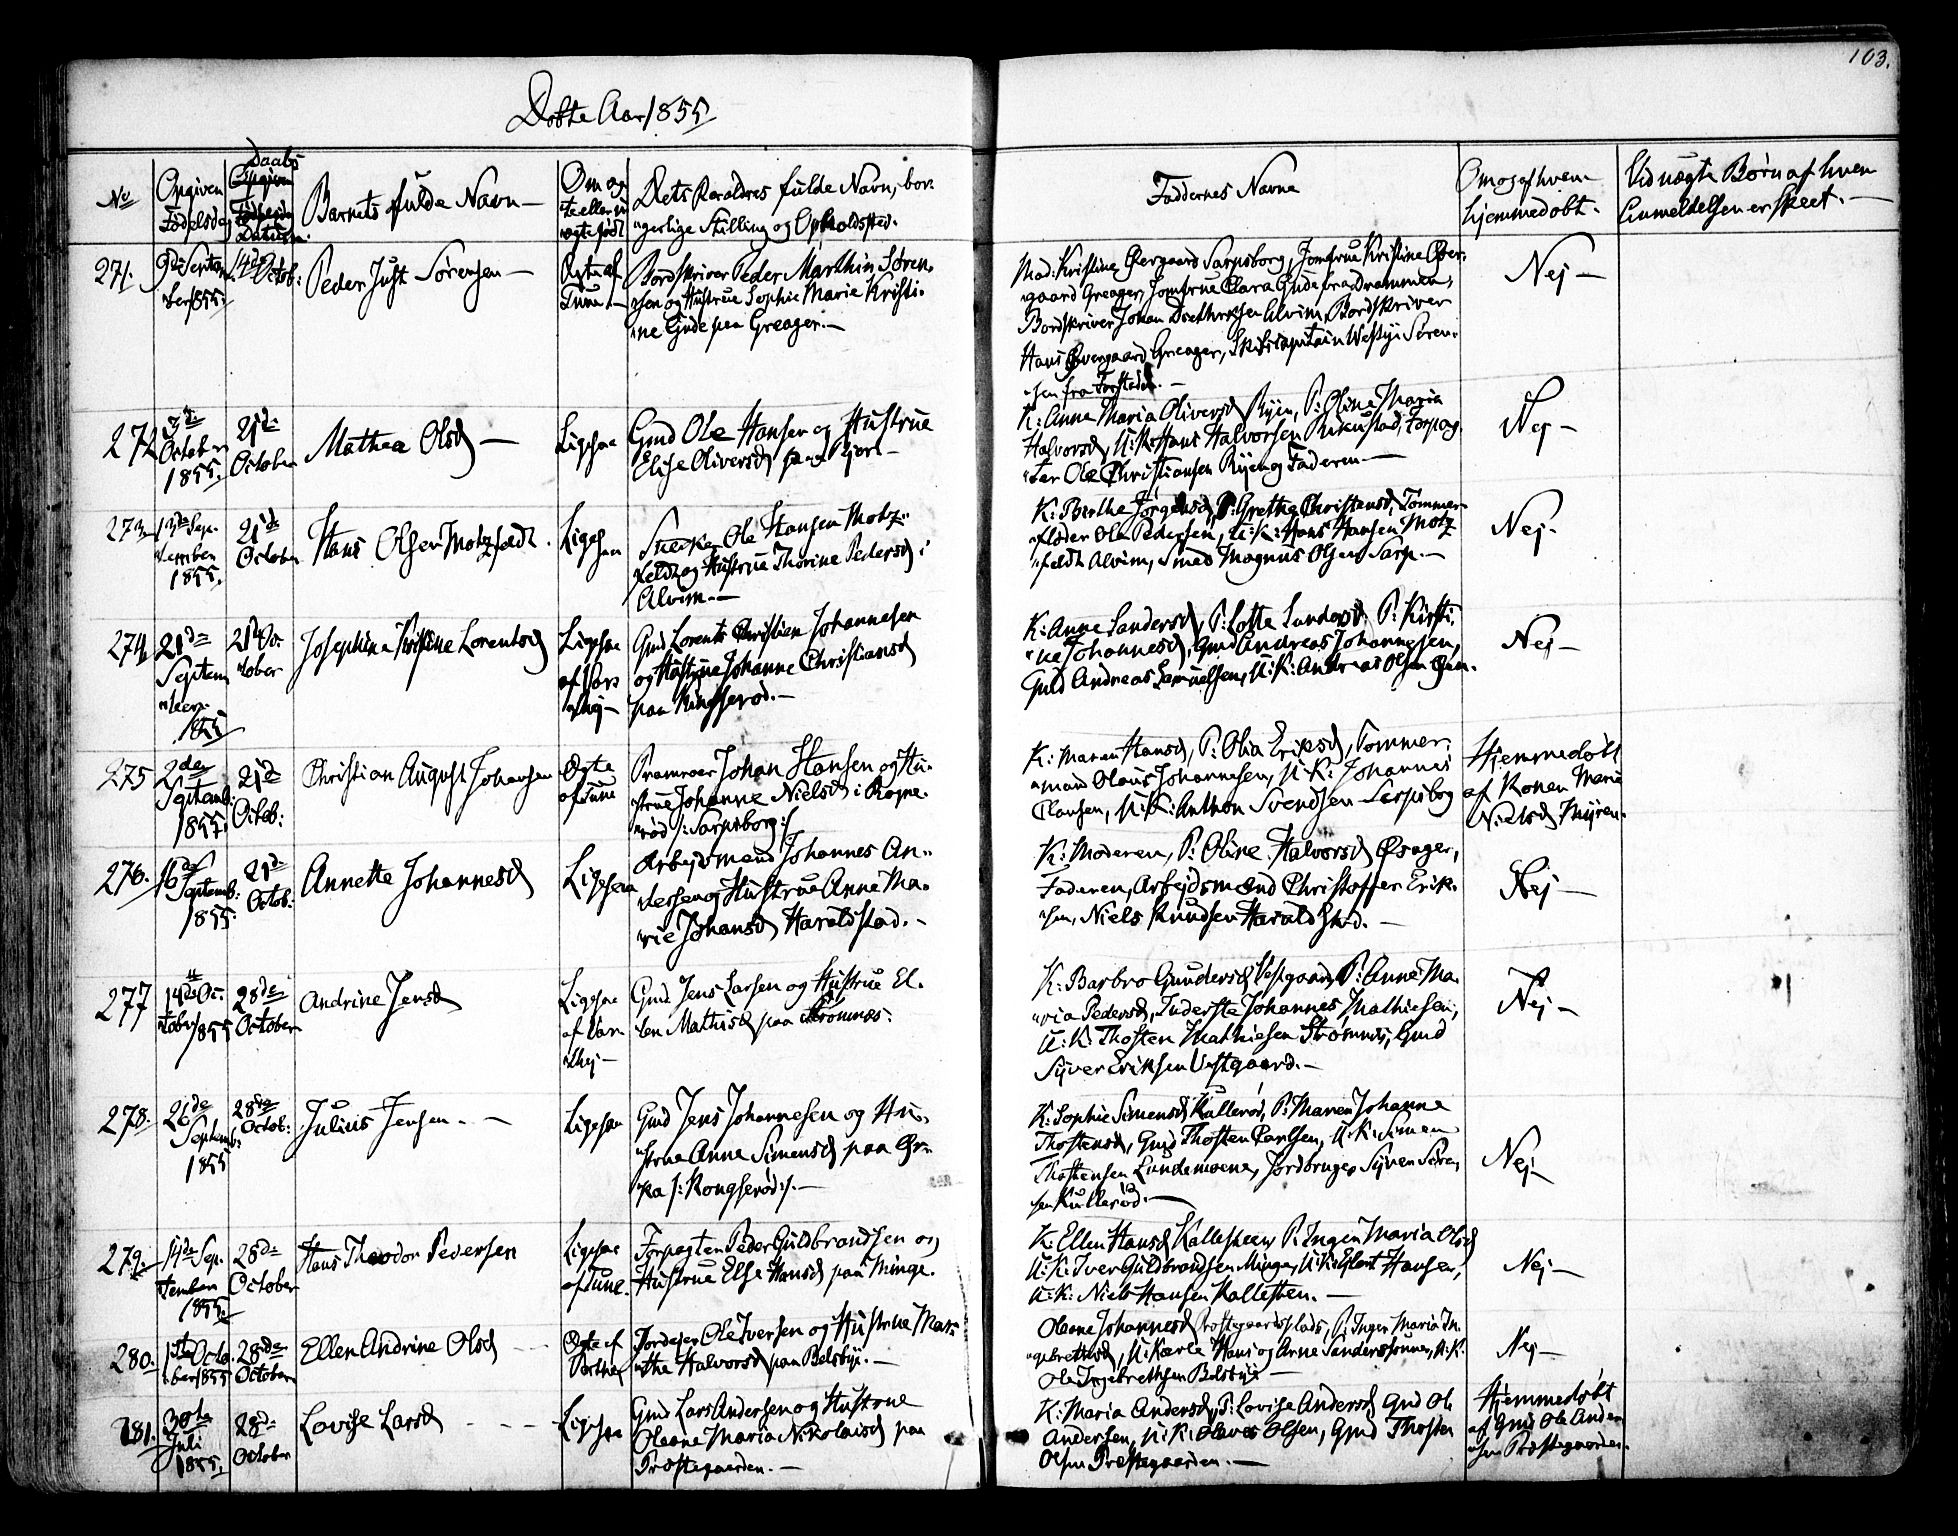 103.
Døbte Aar 1855
No
Opgiven
Fødselsdag
Daabs
Datum.
Barnets fulde Navn
Om æg
te eller u
ægte født
Dets Forældres fulde Navn, bor
gerlige Stilling og Opholdssted.
Faddernes Navne
Om og af hvem
hjemmedøbt.
Ved uægte Børn af hvem
Anmeldelsen er skeet.
271.
9de Septem
ber 1855
14de Octob:
Peder Just Sørensen
Ægte af
Tune
Bordskriver Peder Marthin Søren
sen og Hustrue Sophie Marie Kristi
ne Gude paa Greager.
Mad: Kristine Øvergaard Sarpsborg, Jomfrue Kristine Øver
gaard Greager, Jomfrue Clara Gude fra Drammen,
Bordskriver Johan Alvim, Bordskriver
Hans Øvergaard Greager, Skibscaptain Søren
sen fra
Nej
272
3de
October
1855.
21de
October
Mathea Olsd
Ligesaa
Gmd Ole Hansen og Hustrue
Elise Oliversd paa
K: Anna Maria Oliversd Ryen, P: Oline Maria
Halvorsd, U:K: Hans Halvorsen Forpag
ter Ole Christiansen Ryen og Faderen
Nej
273
13de Sep
tember
1855.
21de
October
Hans Olsen Motzfeldt.
Ligesaa
Ole Hansen Motz
feldt og Hustrue Thorine Pedersd i
Alvim.
K: Berthe Jørgensd, P: Grethe Christensd, Tømmer
fløder Ole Pedersen, U:K: Hans Hansen Motz
feldt Alvim, Smed Magnus Olsen Sarp.
Nej.
274
21de
Septem
ber
1855
21de Oc
tober
Josephine Kristine Lorentsd
Ligesaa
af Vars
Gmd Lorents Christian Johannesen
og Hustrue Johanne Christiansd
paa
K: Anne Sandersd, P: Lotte P: Kirsti
ne Johannesd, Gmd Andreas Johannesen,
Gmd Andreas Samuelsen, U:K: Andreas Olsen
Nej
275
2den
Septemb:
1855
21de
Octob:
Christian August Johansen
Ægte
af Tune
Pramroer Johan Hansen og Hu
strue Johanne Nielsd i
rød /: Sarpsborg :/
K: Maren Hansd, P: Olia Eriksd, Tømmer
mand Olaus Johannesen, U:K: Johannes
Clausen, U:K: Anthon Svendsen Sarpsborg
Hjemmedøbt
af Konen Maria
Nielsd Myren.
276.
16de
Septemb:
1855.
21de
Octob:
Annette Johannesd
Ligesaa
Arbejdsmand Johannes An
dersen og Hustrue Anne Ma
rie Johansd Haraldstad.
K: Moderen, P: Oline Halvorsd
Faderen, Arbejdsmand Christoffer Erik
sen, Niels Knudsen Haraldstad.
Nej
277
14de Oc
tober 1855
28de
October
Andrine Jensd
Ligesaa
af Var
Gmd Jens Larsen og Hustrue El
len Mathisd paa Strømnes.
K: Barbro Gundersd Vestgaard, P: Anne Ma
ria Pedersd, Johannes Mathiesen,
U:K: Thosten Mathiesen Strømnes, Gmd
Syver Eriksen Vestgaard.
Nej
278.
26de
Septemb:
1855
28de
Octob:
Julius Jensen.
Ligesaa
Gmd Jens Johannesen og Hu
strue Anne Simensd paa
/: Kongserød :/.
K: Sophie Simensd Kullerød, P: Maren Johanne
Thostensd, Gmd Thosten Carlsen, U:K: Simen
Thostensen Lundemoene, Jordbruger Syver Søren
sen Kullerød.
Nej
279.
14de Sep
tember
1855.
28de
October
Hans Theodor Pedersen
Ligesaa
af Tune.
Forpagter Peder Guldbrandsen og
Hustrue Else Hansd paa Minge.
K: Ellen Hansd P: Ingen Maria Olsd
U:K: Iver Guldbrandsen Minge, U:K: Hansen,
U:K: Niels Hansen
Nej
280.
1ste Octo
ber 1855
28de
October
Ellen Andrine Olsd
Ægte af
Jordejer Ole Iversen og Hustrue Mar
the Halvorsd paa Belsbye.
Oleane Johannesd Præstegaardsplads, P: Inger Maria In
gebrethsd, U:Karle Hans og Arne Sanderssønner, U:K:
Ole Ingebrethsen Belsbye
Nej
281.
30te
Juli
1855.
28de
October
Lovise Larsd
Ligesaa
Gmd Lars Andersen og Hustrue
Oleane Maria Nikolaisd paa
Præstegaarden.
K: Maria Andersd, P: Lovise Andersd Gmd Ole
Andersen, U:K: Olaves Olsen, Gmd Thosten
Olsen Præstegaarden.
Hjemmedøbt
af Gmd Ole Ander
sen Præstegaarden.